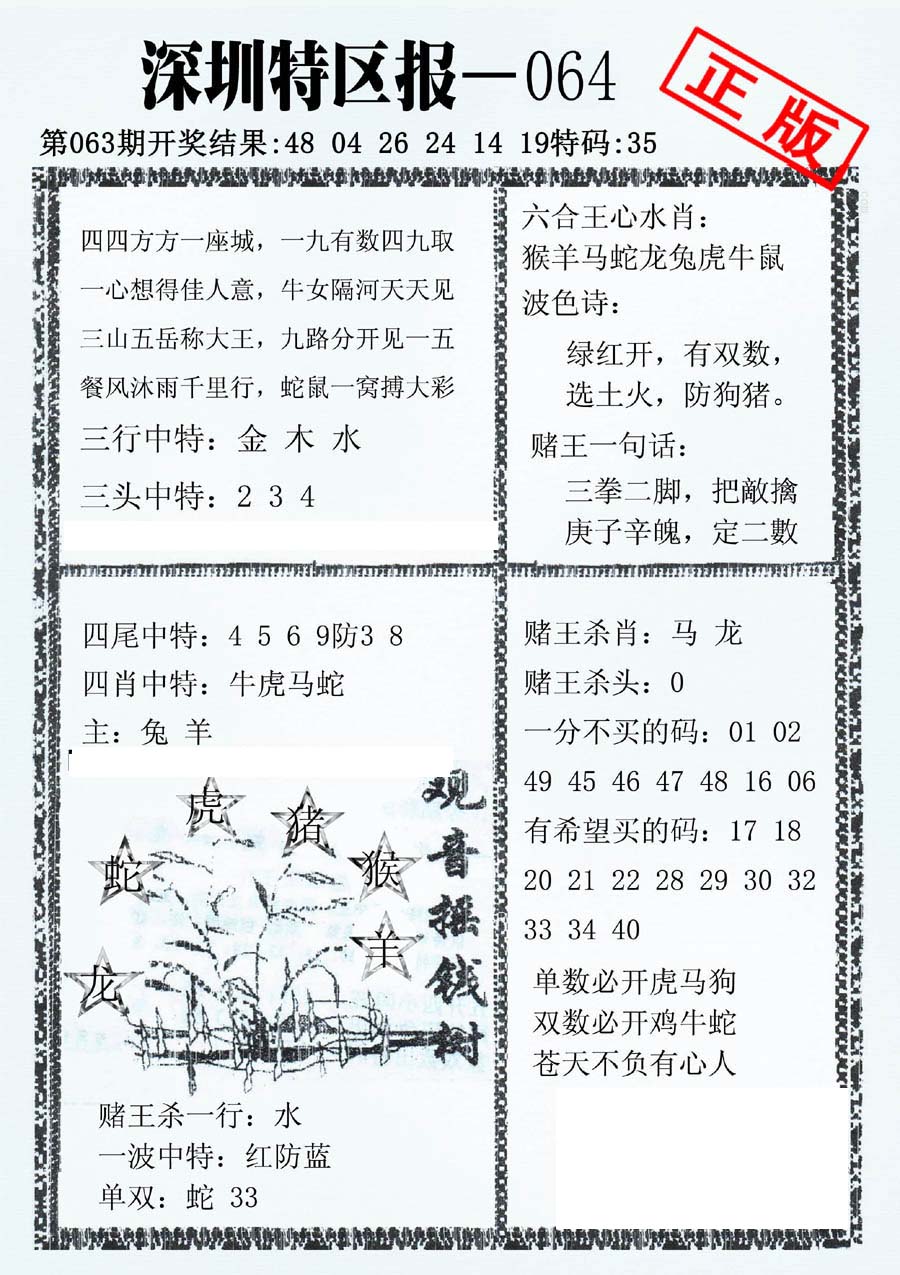 深圳特区报—064
正版
第063期开奖结果:48 04 26 24 14 19特码:35
四四方方一座城，一九有数四九取
一心想得佳人意，牛女隔河天天见
三山五岳称大王，九路分开见一五
餐风沐雨千里行，蛇鼠一窝搏大彩
三行中特：金 木 水
三头中特：2 3 4
六合王心水肖：
猴羊马蛇龙兔虎牛鼠
波色诗：
绿红开，有双数，
选土火，防狗猪。
赌王一句话：
三拳二脚，把敵擒
庚子辛魄，定二數
四尾中特：4 5 6 9防3 8
四肖中特：牛虎马蛇
主：兔 羊
虎
猪
蛇
猴
羊
龙
观音摇钱树
赌王杀一行：水
一波中特：红防蓝
单双：蛇 33
赌王杀肖：马 龙
赌王杀头：0
一分不买的码：01 02
49 45 46 47 48 16 06
有希望买的码：17 18
20 21 22 28 29 30 32
33 34 40
单数必开虎马狗
双数必开鸡牛蛇
苍天不负有心人